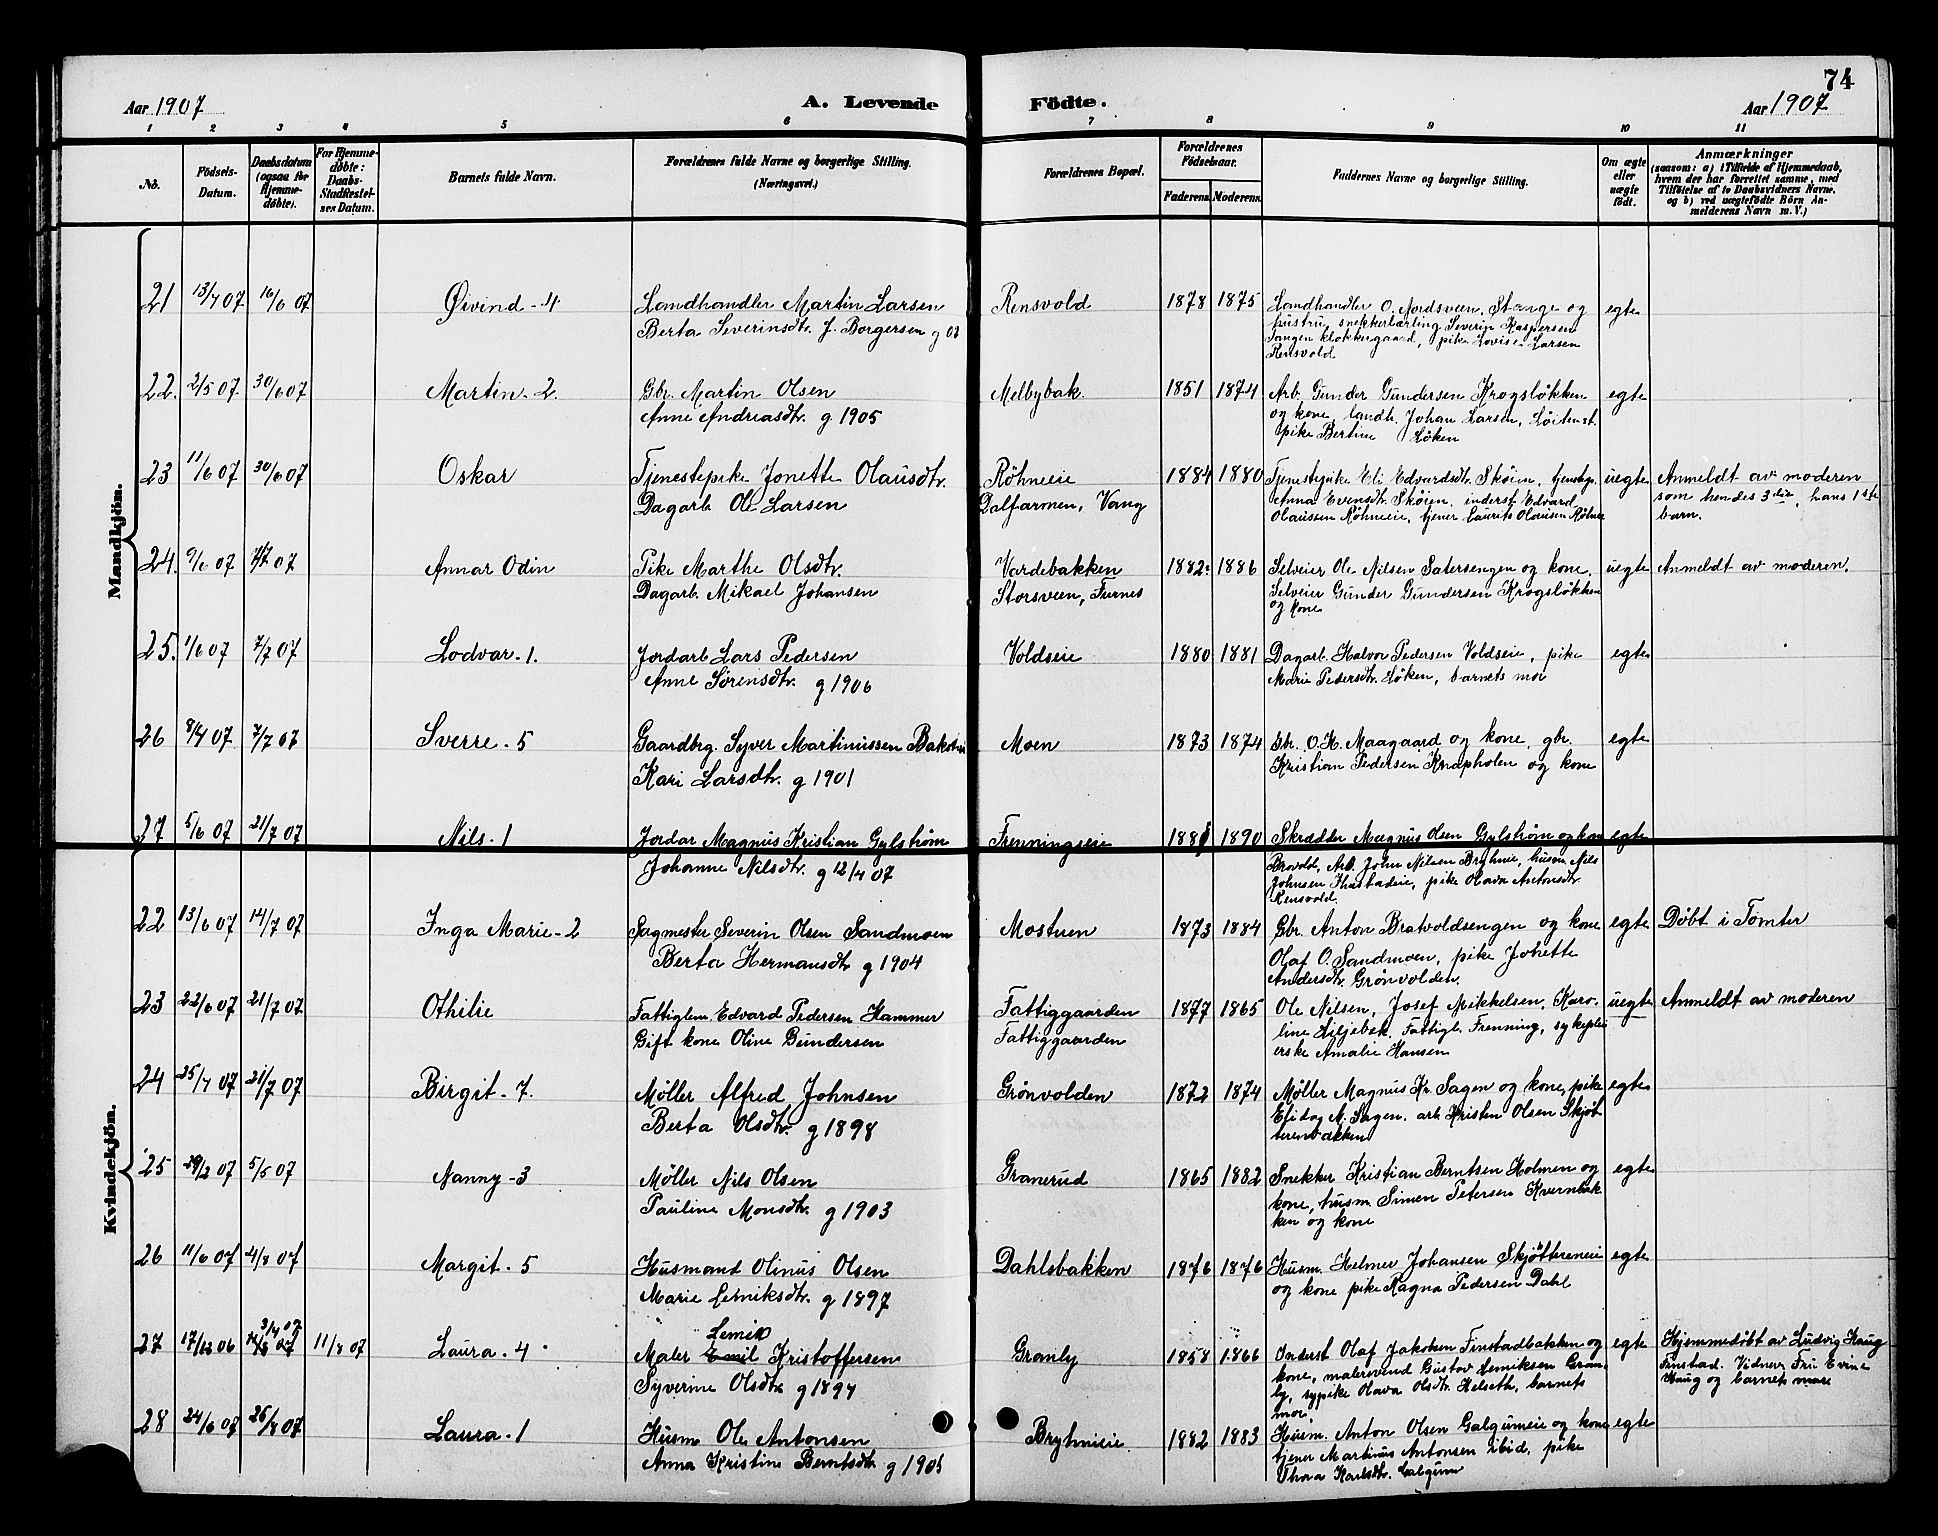 74
Aar 1907 A. Levende Födte. Aar 1907
1 2 3 4 5 6 7 8 9 10 11
No. Födsels-Datum. Daabsdatum (ogsaa for Hjemmedöbte). For Hjemmedöbte: Daabs-Stadfæstelses Datum. Barnets fulde Navn. Forældrenes fulde Navne og borgerlige Stilling. (Næringsvei.) Forældrenes Bopæl. Forældrenes Födselsaar. Faderens. Moderens. Faddernes Navne og borgerlige Stilling. Om ægte eller uægte födt. Anmærkninger (saasom: a) i Tilfælde af Hjemmedaab, hvem der har forrettet samme, med Tilföielse af to Daabsvidners Navne, og b) ved uægtefödte Börn Anmelderens Navn m. V.)
Mandkjön.
21 13/4 07 16/6 07 Øivind - 4 Landhandler Martin Larsen Rensvold 1878 1875 Landhandler O. Nordsveen, Stange og egte
Berta Severinsdtr. f. Borgersen g 02 hustru, snekkerlærling Severin Kaspersen
Tangen klokkergaard, pike Lovise Larsen
Rensvold
22. 2/5 07 30/6 07 Martin - 2. Gbr. Martin Olsen Melbybak. 1851 1874 Arb. Gunder Gundersen Krogsløkken egte
Anne Andreasdtr. g. 1905 og kone, landh. Johan Larsen, Løitenst.
pike Bertine Løken
23 11/6 07 30/6 07 Oskar Tjenestepike Jonette Olausdtr. Røhneeie 1884 1880 Tjenestepike Eli Edvardsdtr. Skøien, tjenestep. uegte Anmeldt av moderen
Dagarb. Ole Larsen Dalfarmen, Vang Anna Evensdtr. Skøien, inderst Edvard som hendes 3die, hans 1ste
Olaussen Røhneeie, tjener Laurits Olausen Røhne barn.
24. 9/6 07 7/7 07 Annar Odin Pike Marthe Olsdtr. Vardebakken 1882 1886 Selveier Ole Nilsen Sætersengen og kone, uegte Anmeldt av moderen.
Dagarb. Mikael Johansen Storsveen, Furnes Selveier Gunder Gundersen Krogsløkken
og kone
25. 1/6 07 7/7 07 Lodvar - 1. Jordarb. Lars Pedersen Voldseie 1880 1881 Dagarb. Halvor Pedersen Voldseie, pike egte
Anne Sørensdtr. g 1906 Marie Pedersdtr. Løken, barnets mor
26 8/4 07 7/7 07 Sverre - 5 Gaardbrg. Syver Martinussen Moen 1873 1874 Gbr. O. H. Maagaard og kone, gbr. egte
Kari Larsdtr. g 1901 Kristian Pedersen Knapholen og kone
27 5/6 07 21/7 07 Nils - 1 Jordar Magnus Kristian Gylstrøm Frenningseie 1881 1890 Skrædder Magnus Olsen Gylstrøm og kone egte
Johanne Nilsdtr. g 12/4 07 Brovold, Arb. John Nilsen Bryhnie, husm. Nils
Johnsen, pike Olava Antonsdtr.
Rensvold.
Kvindekjön.
22 13/6 07 14/7 07 Inga Marie - 2 Sagmester Severin Olsen Sandmoen Mostuen 1873 1884 Gbr. Anton Bratvoldsengen og kone egte Døbt i Tomter
Berta Hermansdtr g 1904 Olaf O. Sandmoen, pike Johette
Andersdtr. Grønvolden.
23 22/6 07 21/7 07 Othilie Fattiglem Edvard Pedersen Hammer Fattiggaarden 1877 1865 Ole Nilsen, Josef Mikkelsen, Karo- uegte Anmeldt av moderen
Gift kone Oline Gundersen Fattiggaarden line Liljebak, Fattigl. Frenning, sykeplei
erske Amalie Hansen
24 25/4 07 21/7 07 Birgit - 7. Møller Alfred Johnsen Grønvolden 1872 1874 Møller Magnus Kr. Sagen og kone, pike egte
Berta Olsdtr. g 1898 M. Sagen. arb. Kristen Olsen Skjøt
terenbakken
25 5/5 07 Nanny - 3 Møller Nils Olsen Granerud 1865 1882 Snekker Kristian Berntsen Holmen og egte
Pauline Monsdtr. g 1903 kone, husm. Simen Petersen Kvernbak
ken og kone
26 11/6 07 4/8 07 Margit - 5 Husmand Olinus Olsen Dahlsbakken 1876 1876 Husm. Helmer Johansen Skjøttereneie egte
Marie Lemiksdtr. g 1897 og kone pike Ragna Pedersen Dahl
27 17/12 06 3/4 07 11/8 07 Laura - 4 Maler Emil Lemik Kristoffersen Granly 1858 1866 Inderst Olaf Jakobsen Finstadbakken og egte Hjemmedøbt av Ludvig Haug
Syverine Olsdtr. g 1894 kone, malersvend Gustav Lemiksen Gran- Finstad. Vidner Fru Evine
ly, sypike Olava Olsdtr. Helseth, barnets Haug og barnets mor
mor.
28 24/6 07 25/8 07 Laura - 1 Husm Ole Antonsen Bryhnieie 1882 1883 Husm. Anton Olsen Galgumeie og kone egte
Anna Kristine Berntsdtr g 1905 tjener Martinus Antonsen ibid, pike
Thora Karlsdtr. Galgum